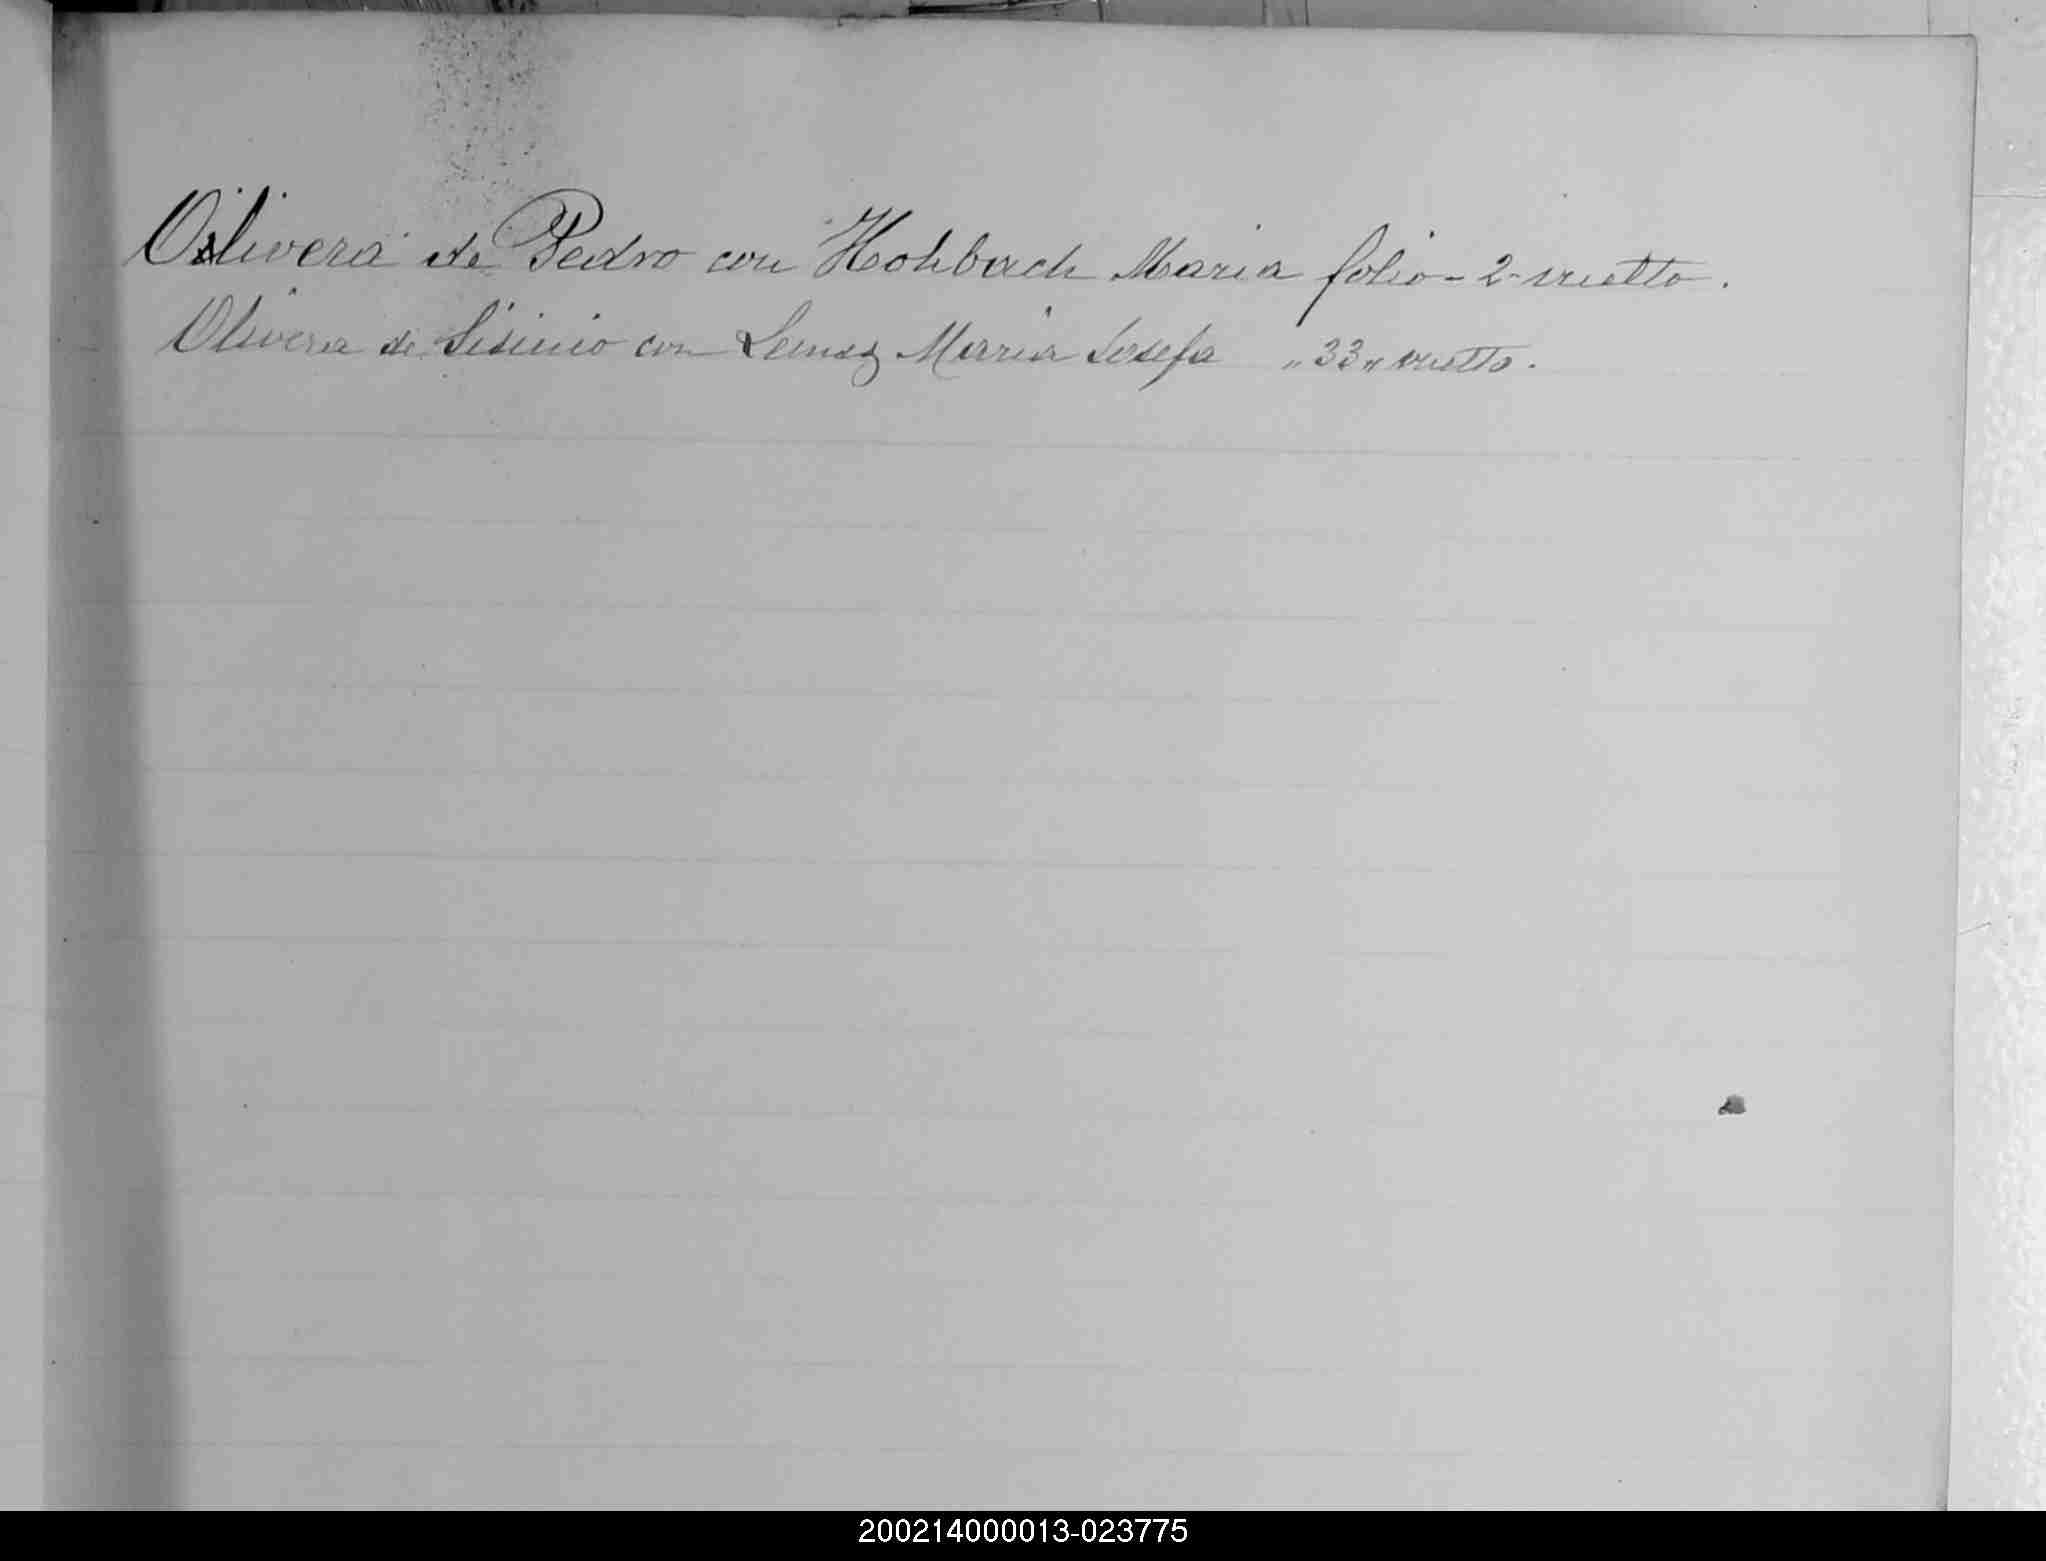 Olivera de Pedro con Hohbach Maria folio - 2 - vuelto.
Olivera de Sisinio con Lemoz Maria Josefa " 33 " vuelto.
200214000013-023775